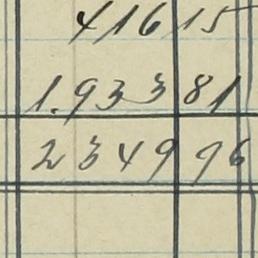 416 15
1.933 81
2349 96